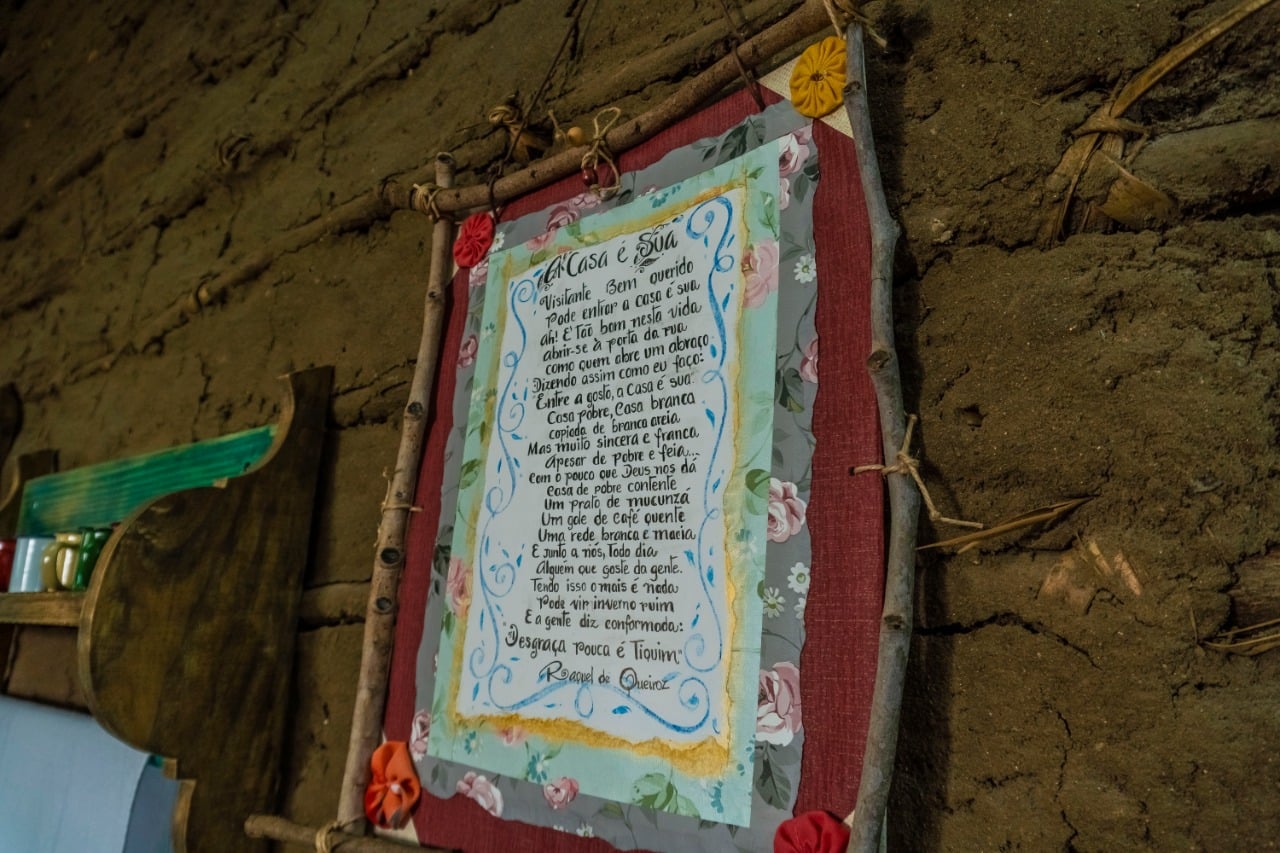 A Casa é Sua
Visitante Bem querido
Pode entrar a casa é sua
ah! É Tão bom nesta vida
abrir-se à porta da rua
como quem abre um abraço
Dizendo assim como eu faço:
"Entre a gosto, a Casa é sua.
Casa pobre, Casa branca
copiada de branca areia
Mas muito sincera e franca
Apesar de pobre e feia...
com o pouco que Deus nos dá
Casa de pobre contente
Um prato de mucunzá
Um gole de café quente
Uma rede branca e macia
E junto a nós, Todo dia
Alguém que goste da gente.
Tendo isso o mais é nada
Pode vir inverno ruim
E a gente diz conformada:
"Desgraça pouca é Tiquim"
Raquel de Queiroz